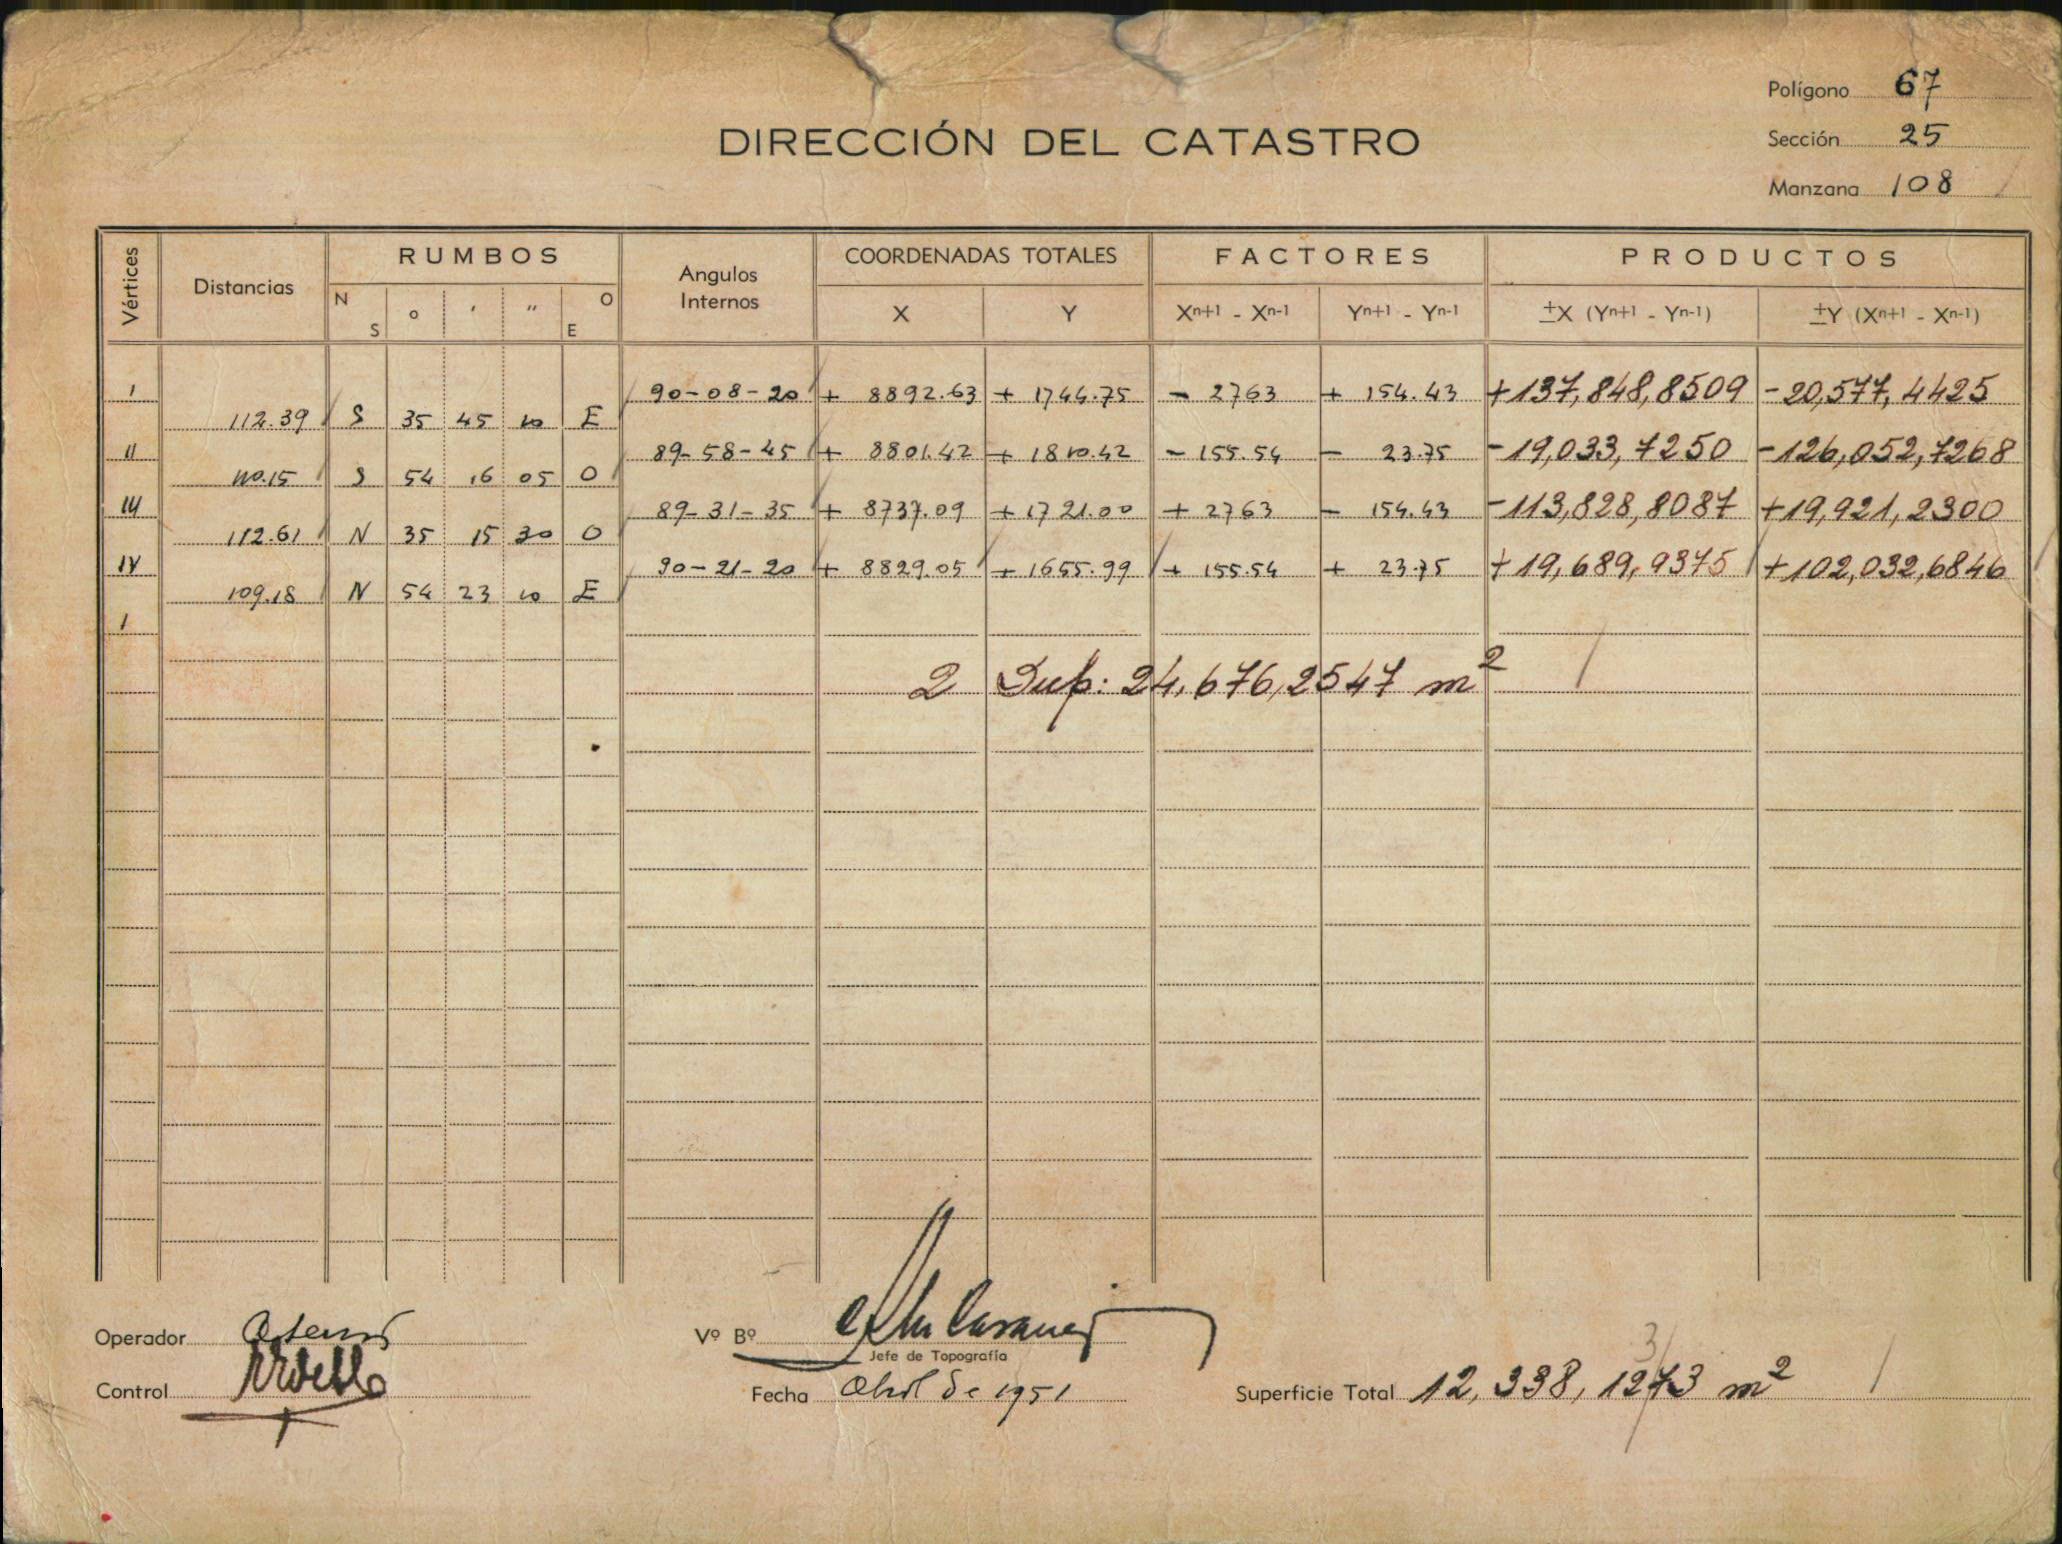 Polígono 67
DIRECCIÓN DEL CATASTRO
Sección 25
Manzana 108
Vértices Distancias RUMBOS Angulos Internos COORDENADAS TOTALES FACTORES PRODUCTOS
N S o ' " O E X Y Xn+1 - Xn-1 Yn+1 - Yn-1 ±X (Yn+1 - Yn-1) ±Y (Xn+1 - Xn-1)
I 90-08-20 + 8892.63 + 1744.75 - 2763 + 154.43 +137,848,8509 -20,577,4425
112.39 S 35 45 10 E
II 89-58-45 + 8801.42 + 1810.42 - 155.54 - 23.75 -19,033,7250 -126,052,7268
110.15 S 54 16 05 O
III 89-31-35 + 8737.09 + 1721.00 + 2763 - 154.43 -113,828,8087 +19,921,2300
112.61 N 35 15 30 O
IV 90-21-20 + 8829.05 + 1655.99 + 155.54 + 23.75 +19,689,9375 +102,032,6846
109.18 N 54 23 10 E
I
2 Sup: 24,676,2547 m²
Operador
Vº Bº
Jefe de Topografía
Control
Fecha Abril de 1951
Superficie Total 12,338,1273 m²
3